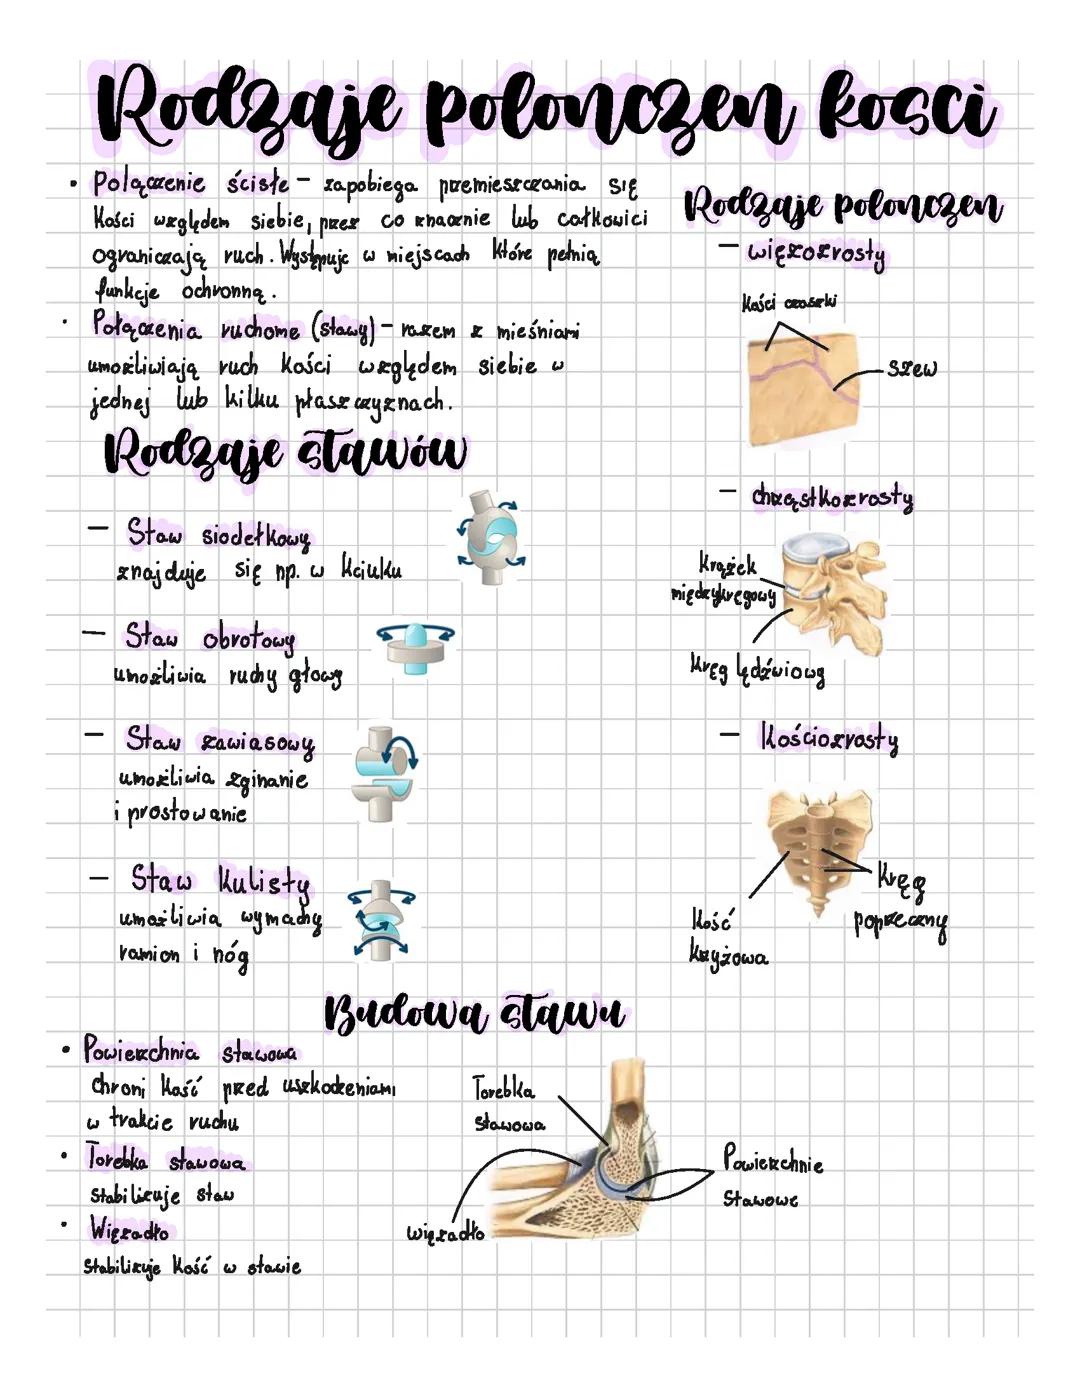 Rodzaje polonczen kosci
• Polączenie ścisłe – zapobiega przemieszczania się
kości względem siebie, przez co znacznie lub całkowici
ograniczają ruch. Występuje w miejscach które pełnią
funkcje ochronną.
• Połączenia ruchome (stawy) – razem z mieśniami
umożliwiają ruch kości względem siebie w
jednej lub kilku płaszczyznach.
Rodzaje stawów
– Staw siodełkowy
znajduje się np. w kciuku
– Staw obrotowy
umożliwia ruchy głowy
– Staw zawiasowy
umożliwia zginanie
i prostowanie
– Staw kulisty
umożliwia wymachy
ramion i nóg
Rodzaje polonczen
– więzozrosty
kości czaszki
szew
– chrząstkozrosty
krążek
międzykręgowy
kręg lędźwiowy
– kościozrosty
kość
krzyżowa
kręg
poprzeczny
Budowa stawu
• Powierzchnia stawowa
chroni kość przed uszkodzeniami
w trakcie ruchu
• Torebka stawowa
stabilizuje staw
• Więzadło
stabilizuje kość w stawie
Torebka
stawowa
więzadło
Powierzchnie
stawowe